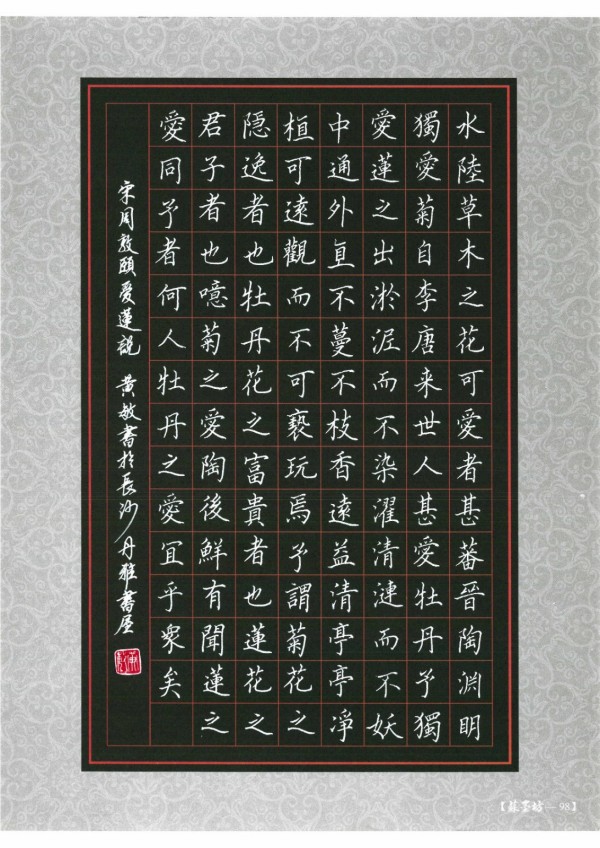 水陸草木之花可愛者甚蕃晉陶淵明
獨愛菊自李唐来世人甚愛牡丹予獨
愛蓮之出淤泥而不染濯清漣而不妖
中通外直不蔓不枝香遠益清亭亭凈
植可遠觀而不可褻玩焉予謂菊花之
隱逸者也牡丹花之富貴者也蓮花之
君子者也噫菊之愛陶後鮮有聞蓮之
愛同予者何人牡丹之愛宜乎衆矣
宋周敦頤愛蓮説 黄敏書於長沙丹雅書屋
98